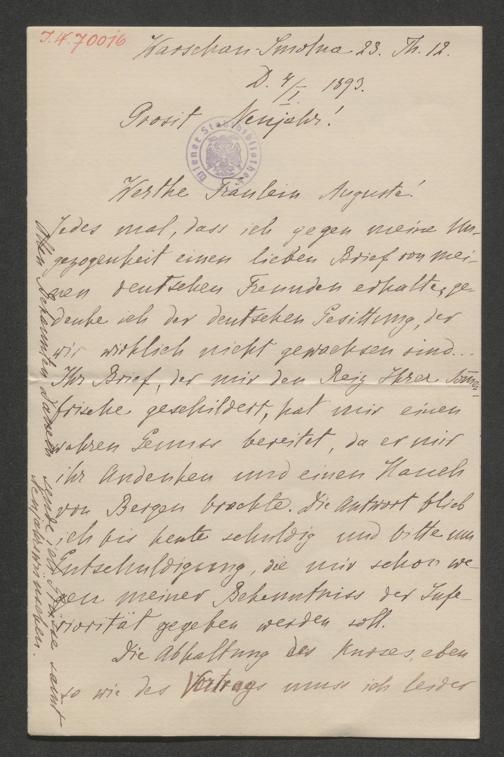 J.N. 70016
Warschau-Smolna 23. Th. 12.
D. 4/I 1893.
Prosit Neujahr!
Wiener Stadtbibliothek
Werthe Fräulein Auguste!
Jedes mal, dass ich gegen meine Un-
gezogenheit einen lieben Brief von mei-
nen deutschen Freunden erhalte, ge-
denke ich der deutschen Gesittung, der
wir wirklich nicht gewachsen sind...
Ihr Brief, der mir den Reiz Ihrer
frische geschildert, hat mir einen
wahren Genuss bereitet, da er mir
ihr Andenken und einen Hauch
von Bergen brachte. Die Antwort blieb
ich bis heute schuldig und bitte um
Entschuldigung, die mir schon we-
gen meiner Bekenntniss der Infe-
riorität gegeben werden soll.
Die Abhaltung des Kurses, eben
so wie des Vortrags muss ich leider
Bekannten Damen sende ich Grüsse samt
Neujahrswünschen.